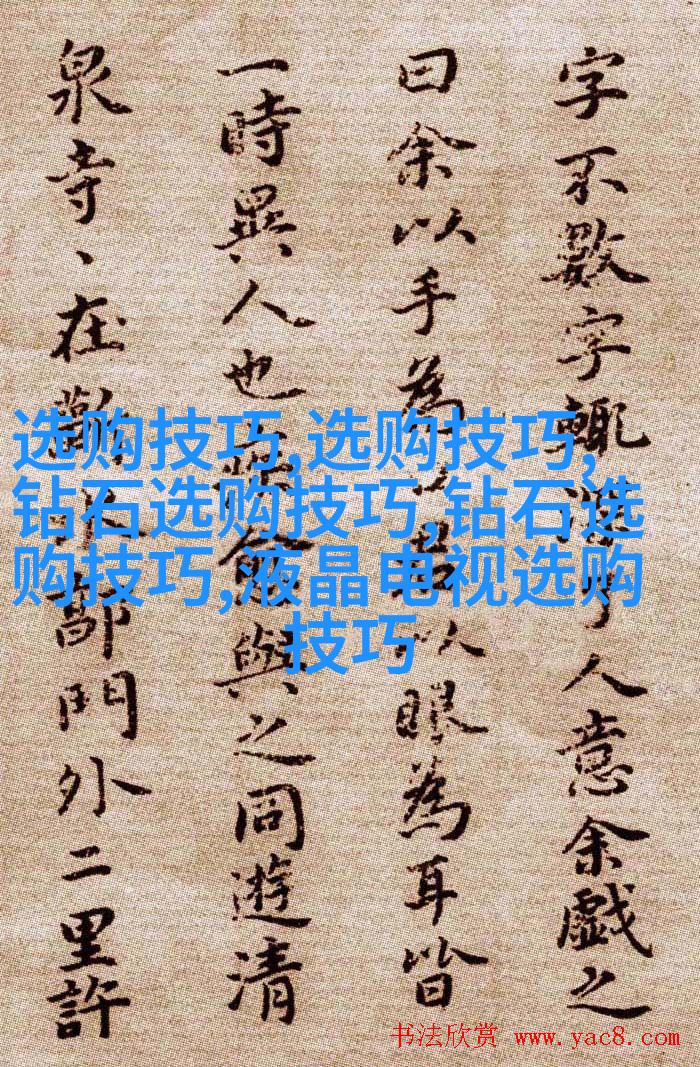 字不數字輒了人意余戲之
曰余以手為君以眼為耳皆
一時異人也愈與之同遊清
泉寺、在水門外二里許
选购技巧,选购技巧,
钻石选购技巧,钻石选
购技巧,液晶电视选购
技巧
书法欣赏 www.yac8.com